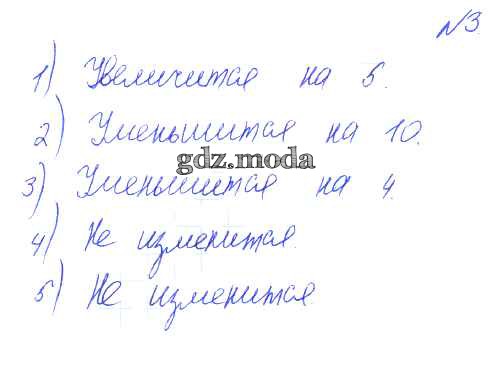 №3.
1) Увеличится на 5.
2) Уменьшится на 10.
gdz.moda
3) Уменьшится на 4.
4) Не изменится.
5) Не изменится.